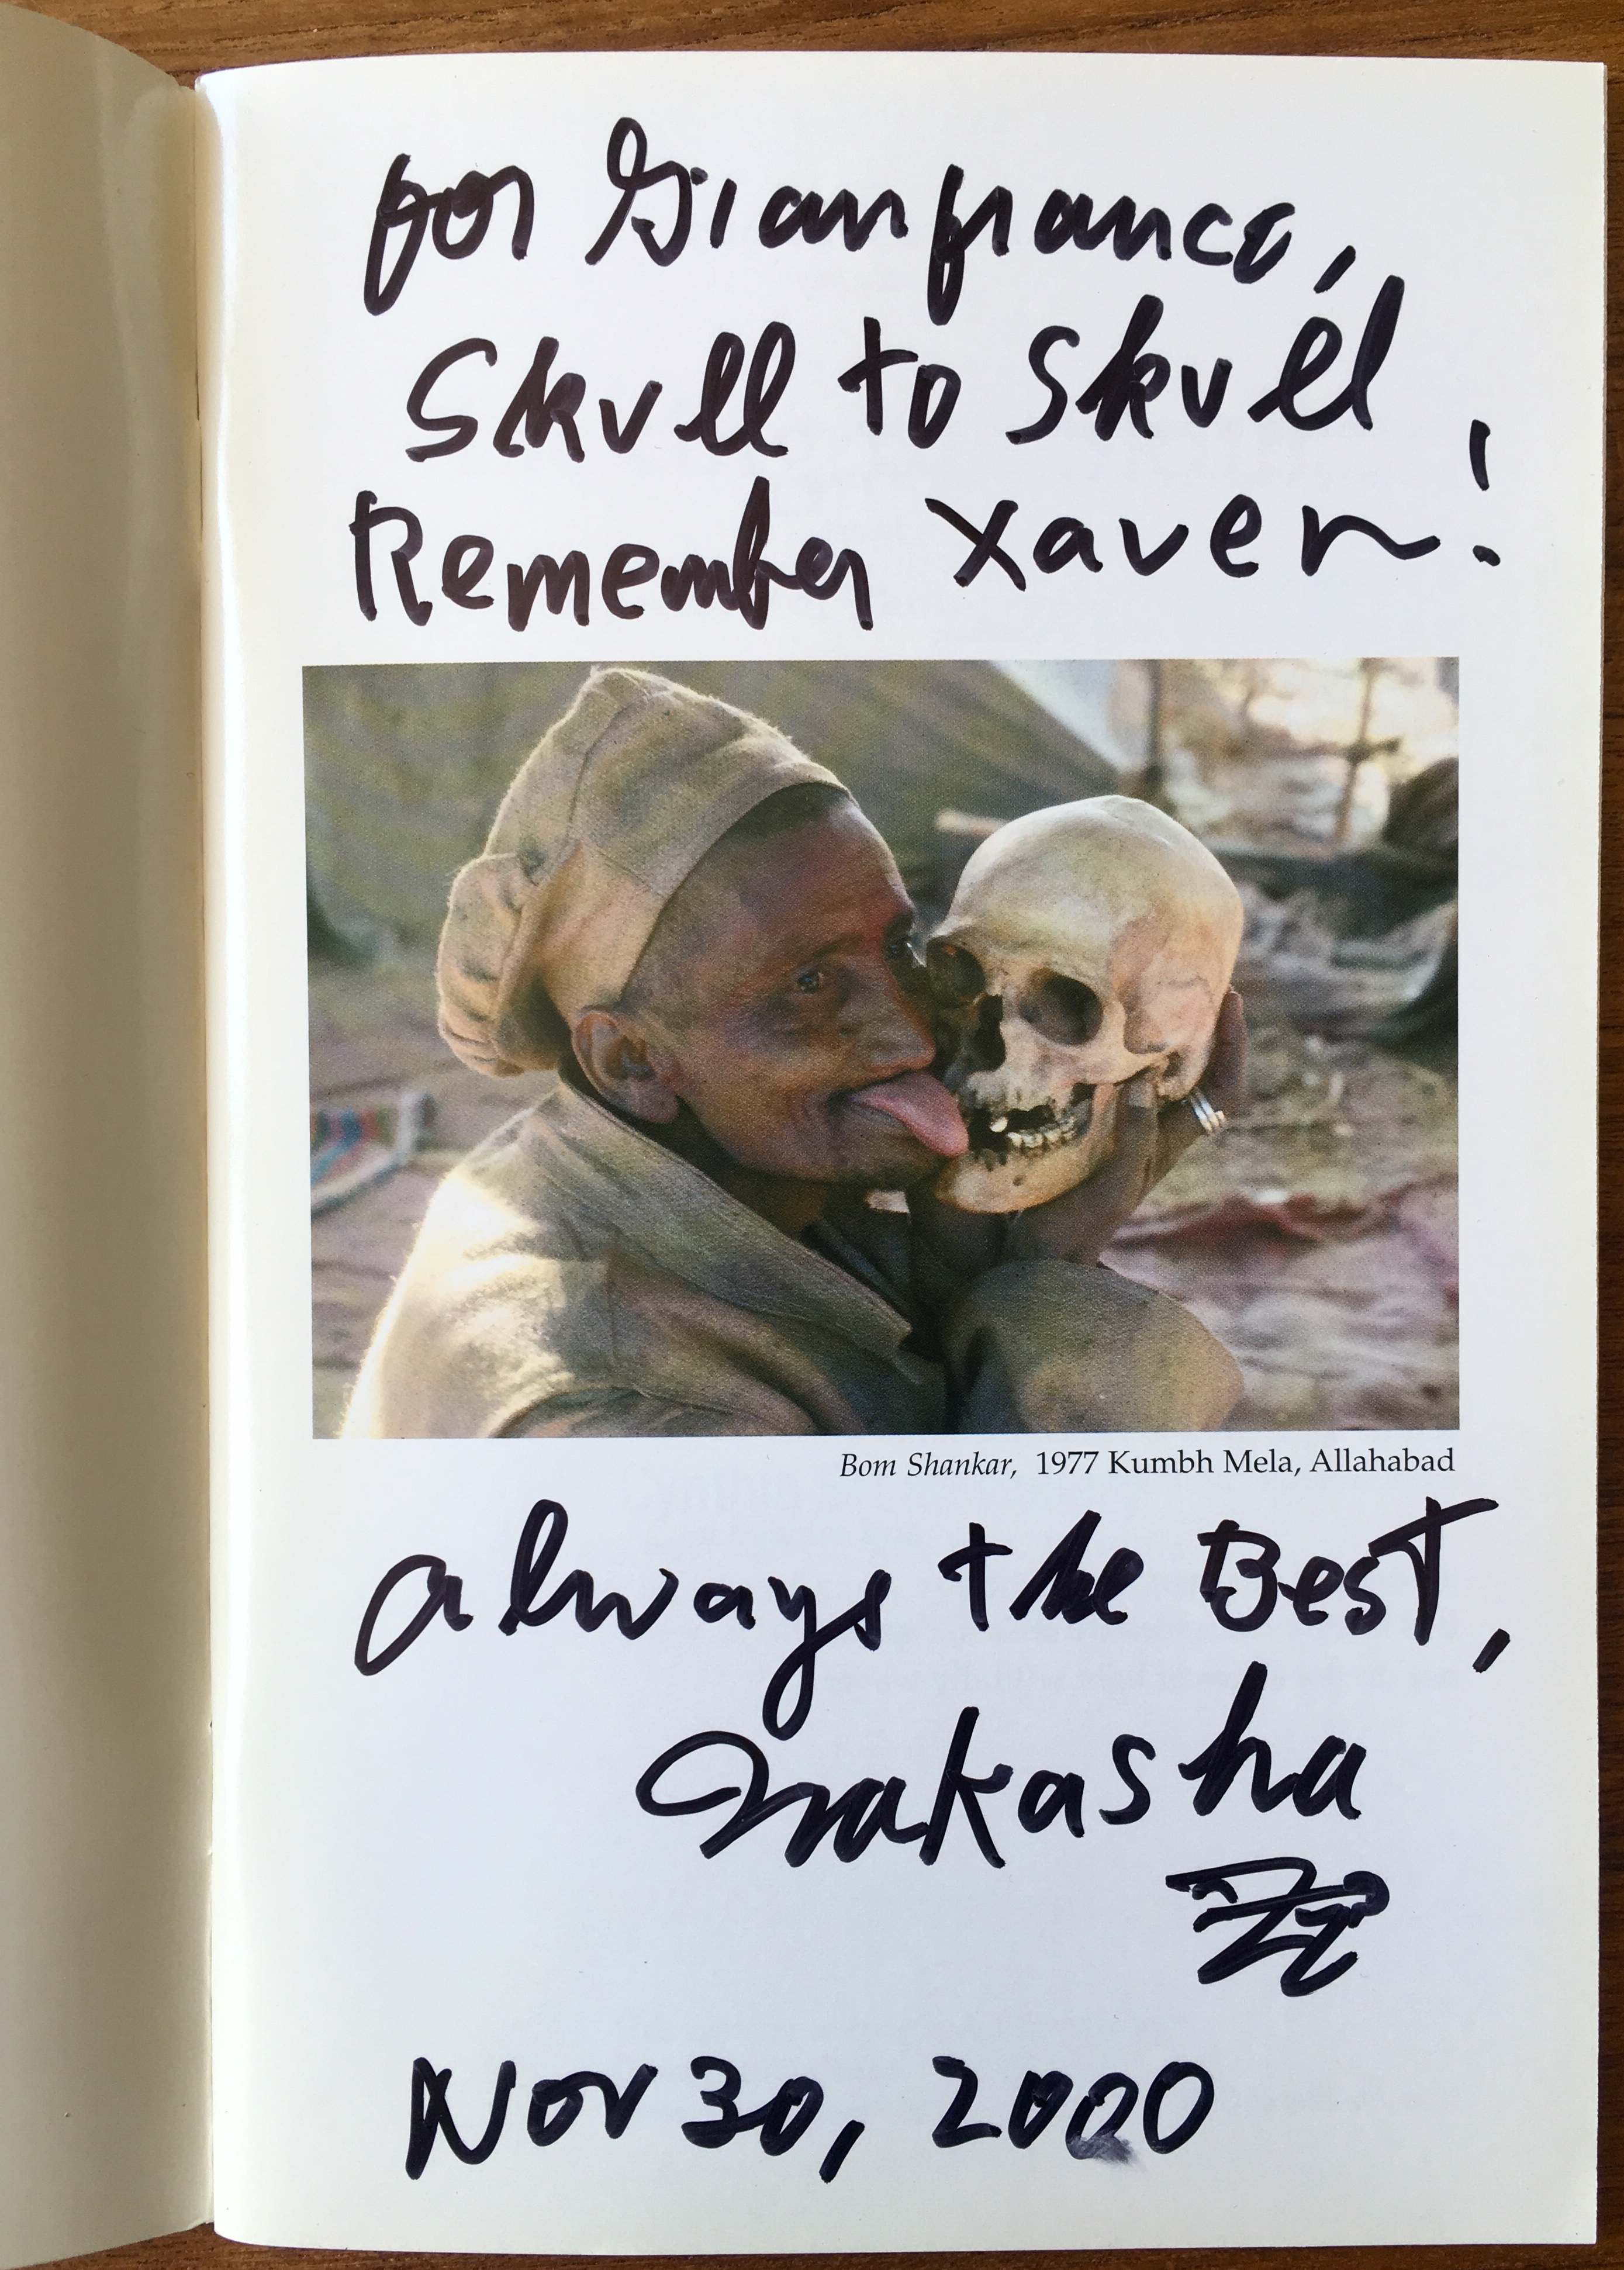 For Gianfranco,
Skull to Skull
Remember Xaver!
Bom Shankar, 1977 Kumbh Mela, Allahabad
Always the Best,
Nakasha
Nov 30, 2000